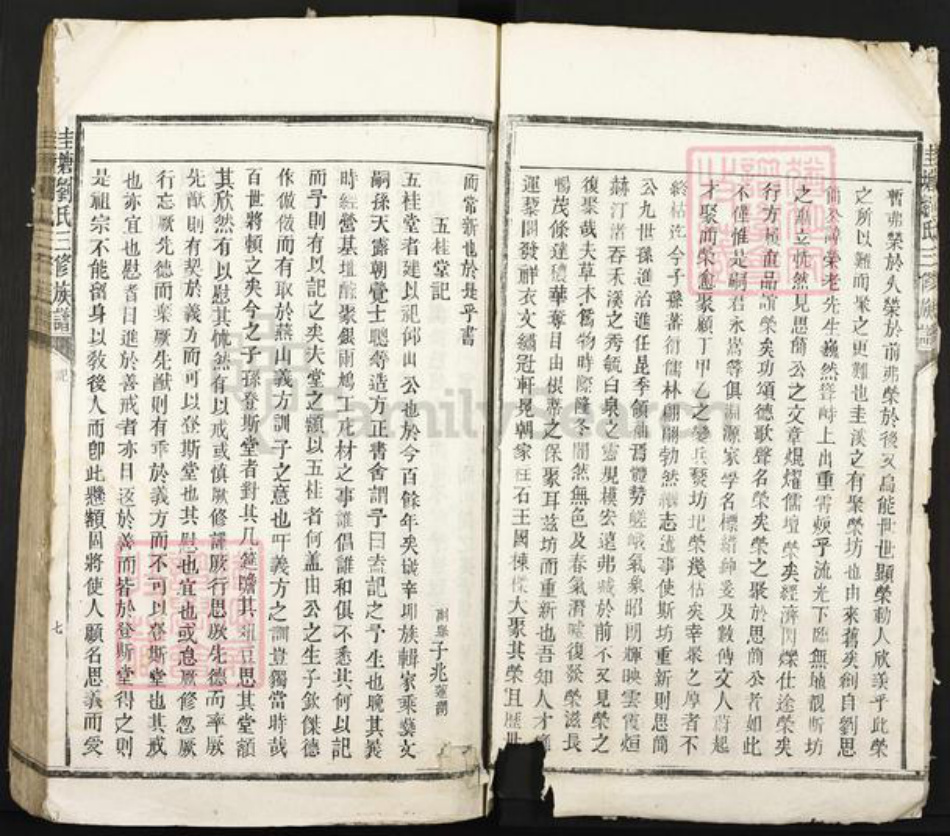 圭塘劉氏三修族譜
暫弗榮於久榮於前弗榮於後又烏能世世顯榮動人欣羨乎此榮
之所以難而聚之更難也圭溪之有聚榮坊也由來舊矣創自劉思
簡公 榮老先生巍然聳峙上出重霄頫乎流光下臨無地觀斯坊
之 立恍然見思簡公之文章焜燿儒壇榮矣經濟閃爍仕途榮矣
行方 直品 榮矣功頌德歌聲名榮矣榮之聚於思簡公者如此
不僅惟是嗣君永嵩等俱 源家學名標縉紳爰及數傳文人蔚起
才聚而榮愈聚顧丁甲乙之變兵燹坊圮榮幾枯矣幸聚之厚者不
終枯迄今子孫蕃衍儒林翩翩勃然繼志述事使斯坊重新則思簡
公九世孫進治進任昆季領 焉體勢嵯峨氣象昭朗輝映雲霞烜
赫汀渚吞禾溪之秀毓白泉之靈規模宏遠弗 於前不又見榮之
復聚哉夫草木舊物時際隆冬闇然無色及春氣潛噓復發榮滋長
暢茂條達穠華奪目由根蒂之保聚耳茲坊而重新也吾知人才
運 開發 衣文繡冠軒冕朝家柱石王國棟樑大聚其榮且歷世
而常新也於是乎書
五桂堂記
子兆
五桂堂者建以祀仰山公也於今百餘年矣歲辛卯族輯家乘藝文
嗣孫天露朝覺士聰等造方正書舍謂予曰盍記之予生也晚其襄
時經營基壇釀聚銀兩鳩工庀材之事誰倡誰和俱不悉其何以記
而予則有以記之矣夫堂之額以五桂者何蓋由公之生子欽傑德
休俶儆而有取於燕山義方訓子之意也吁義方之訓豈獨當時哉
百世將頼之矣今之子孫登斯堂者對其几筵瞻其俎豆思其堂額
其欣然有以慰其怵然有以戒或愼厥修謹厥行思厥先德而率厥
先猷則有契於義方而可以登斯堂也其慰也宜也或怠厥修忽厥
行忘厥先德而棄厥先猷則有乖於義方而不可以登斯堂也其戒
也亦宜也慰者日進於善戒者亦日返於善而皆於登斯堂得之則
是祖宗不能留身以敎後人而卽此懸額固將使人顧名思義而愛
圭塘劉氏三修族譜
記
七
FamilySearch